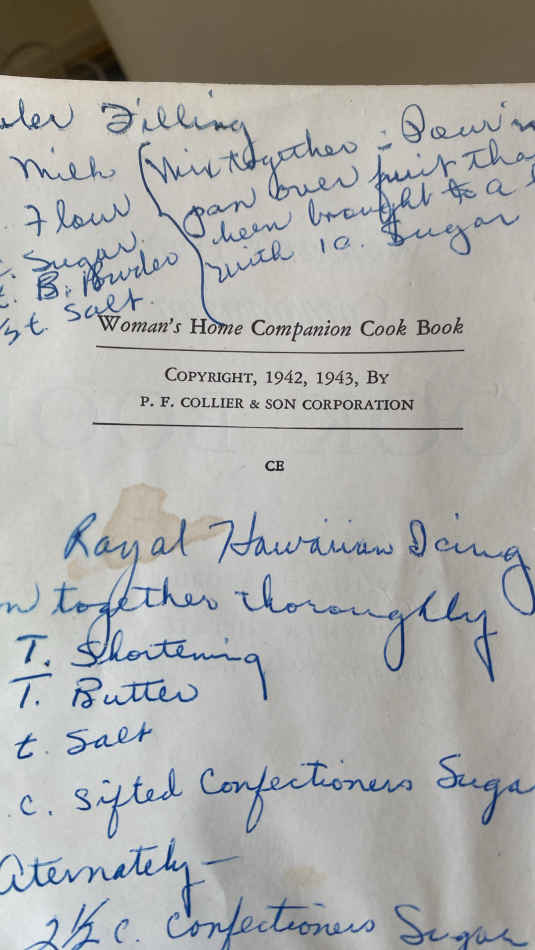 Filling
Milk (Mix together - Pour in
Flour pan over fruit tha
Sugar been brought to a
B. Powder with 1 c. Sugar
t. Salt
Woman's Home Companion Cook Book
COPYRIGHT, 1942, 1943, BY
P. F. COLLIER & SON CORPORATION
CE
Royal Hawaiian Icing
together thoroughly
T. Shortening
T. Butter
t. Salt
c. Sifted Confectioners Suga
Aternately —
2 1/2 c. Confectioners Sugar